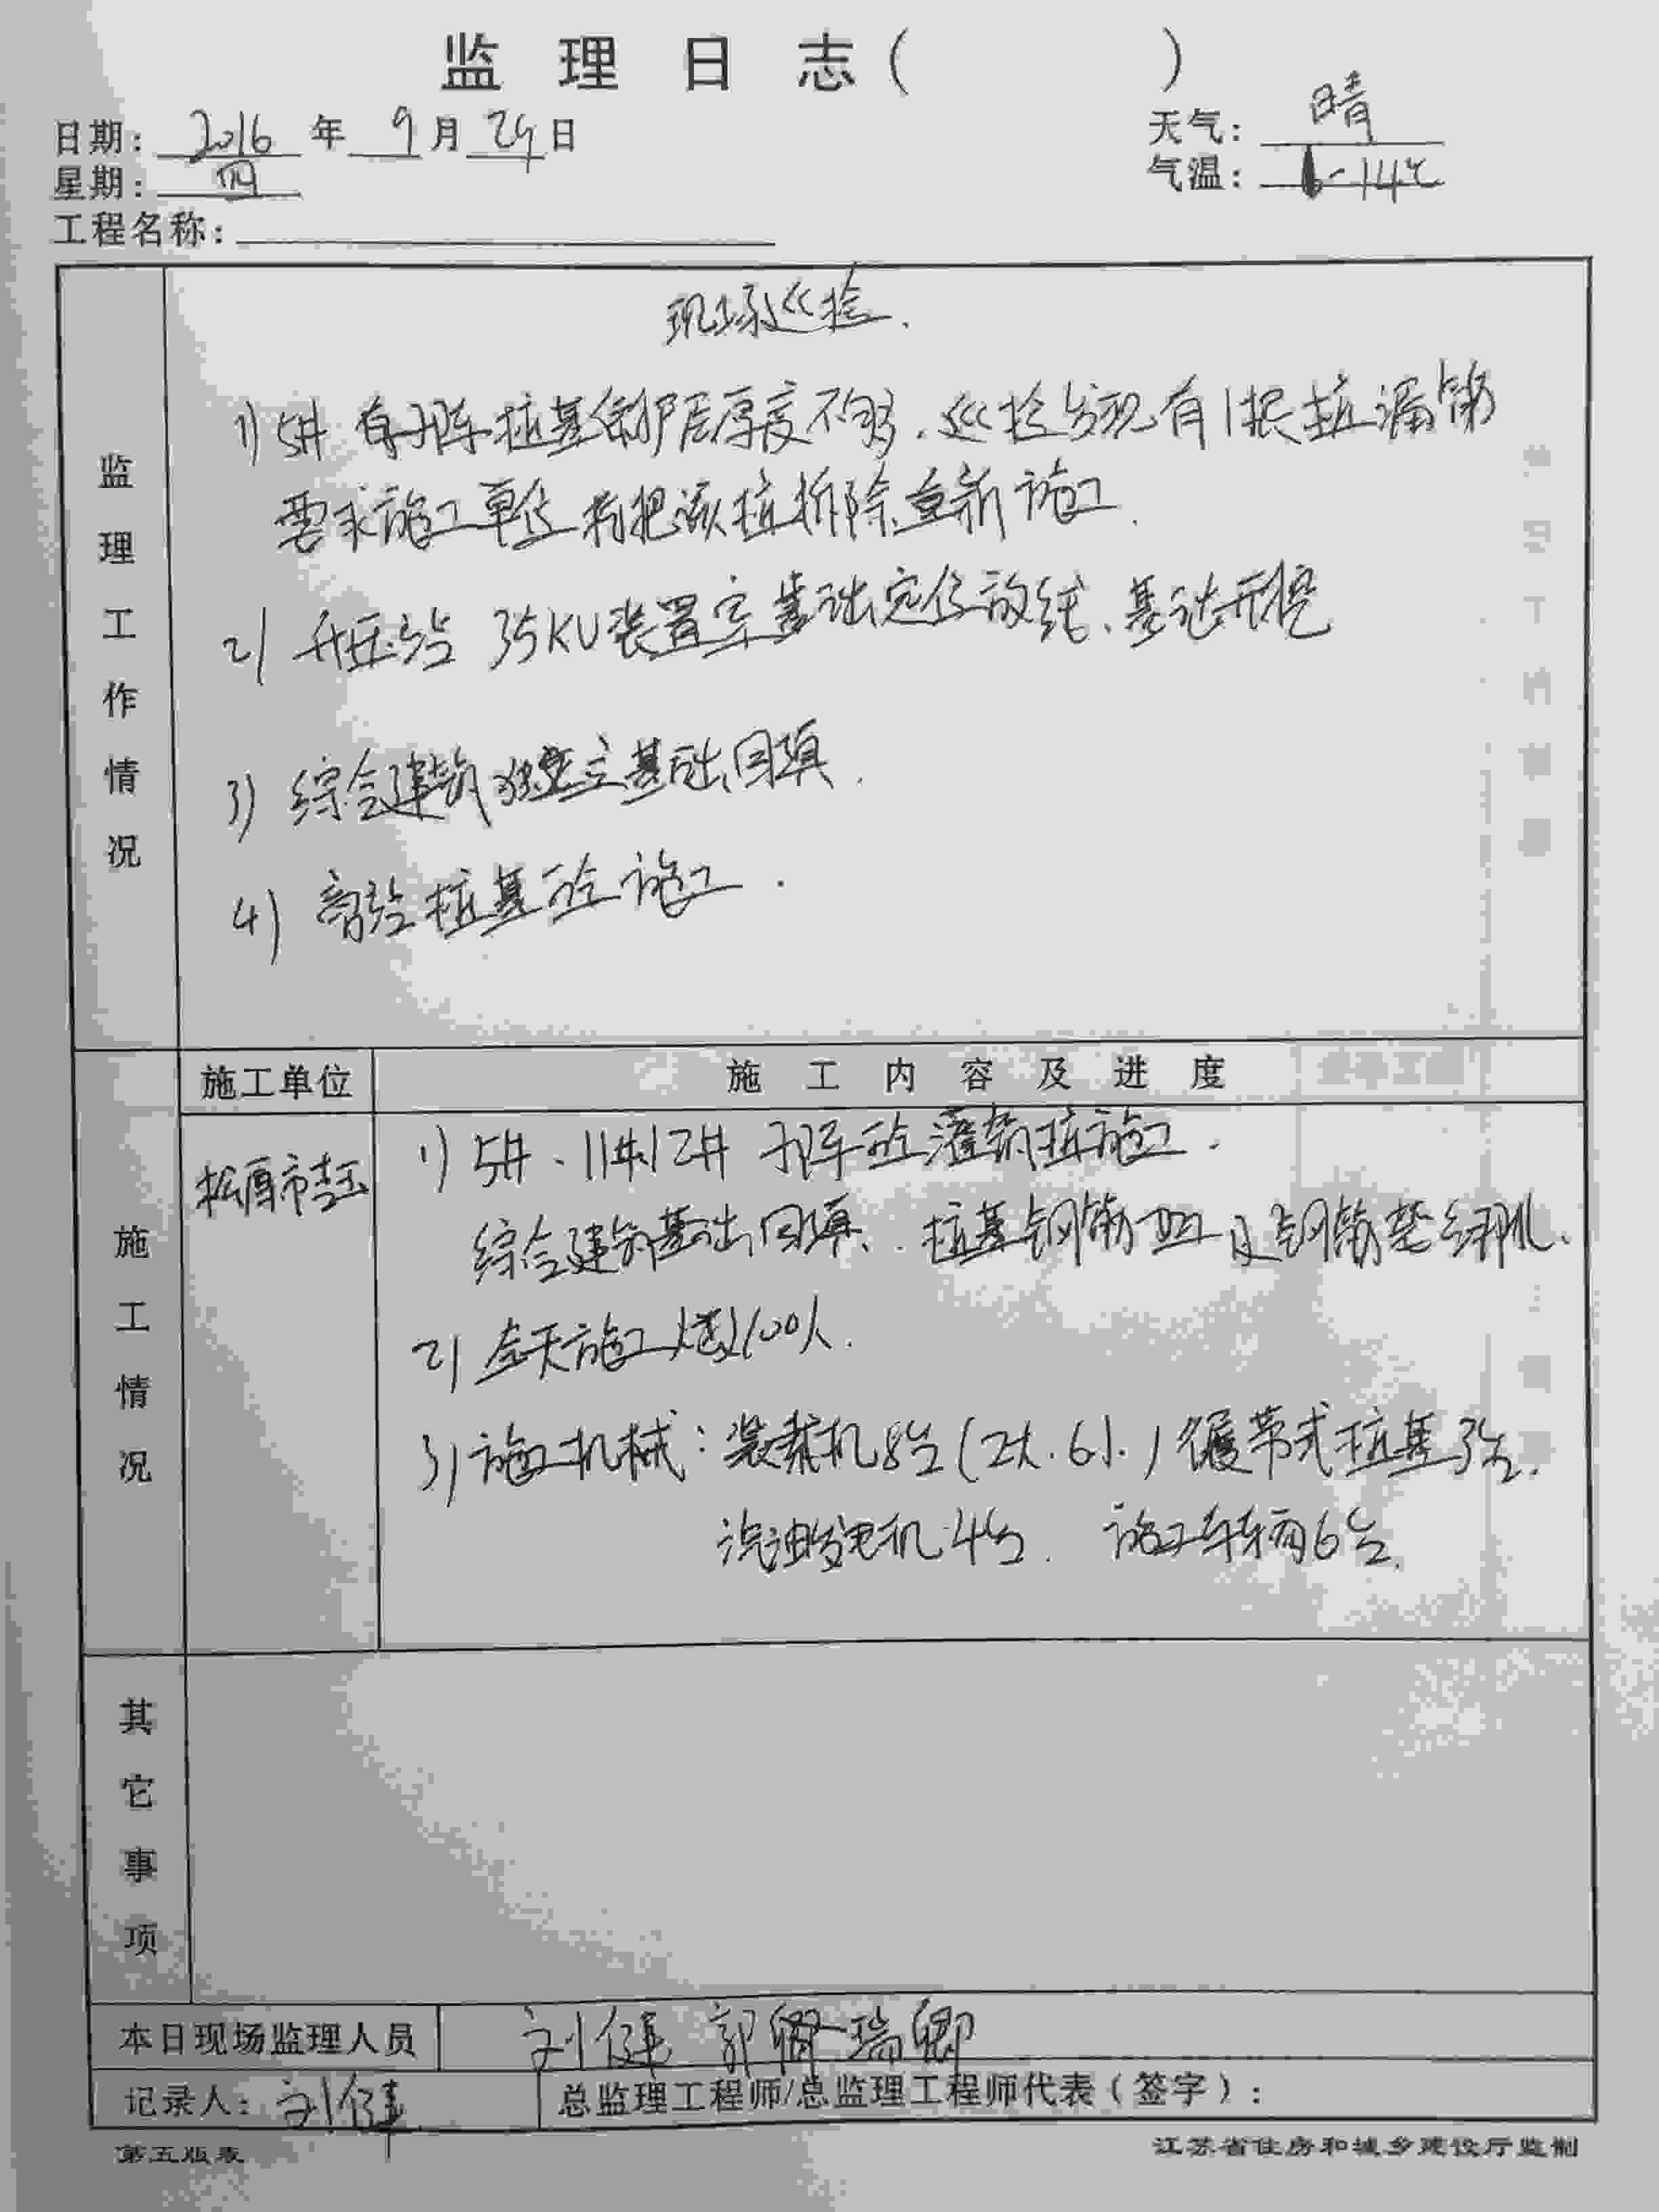 监理日志（ ）
日期：2016年9月29日
天气：晴
星期：四
气温：-14℃
工程名称：
监理工作情况
现场巡检.
1) 5# 子阵桩基保护层厚度不够.巡检发现有1根桩漏筋
要求施工单位 把该桩拆除重新施工.
2) 升压站 35KV装置室基础定位放线、基础开挖
3) 综合建筑独立基础回填.
4) 桩基砼施工.
施工情况
施工单位
施工内容及进度
松原市
1) 5#、11#12# 子阵砼灌筑桩施工.
综合建筑基础回填、桩基钢筋 及钢筋 绑扎.
2) 今天施工人员100人.
3) 施工机械：装载机8台(2大.6小.) 履带式桩基3台.
汽油发电机4台. 施工车辆6台.
其它事项
本日现场监理人员 刘健 郭 瑞卿
记录人：刘健
总监理工程师/总监理工程师代表（签字）：
第五版表
江苏省住房和城乡建设厅监制